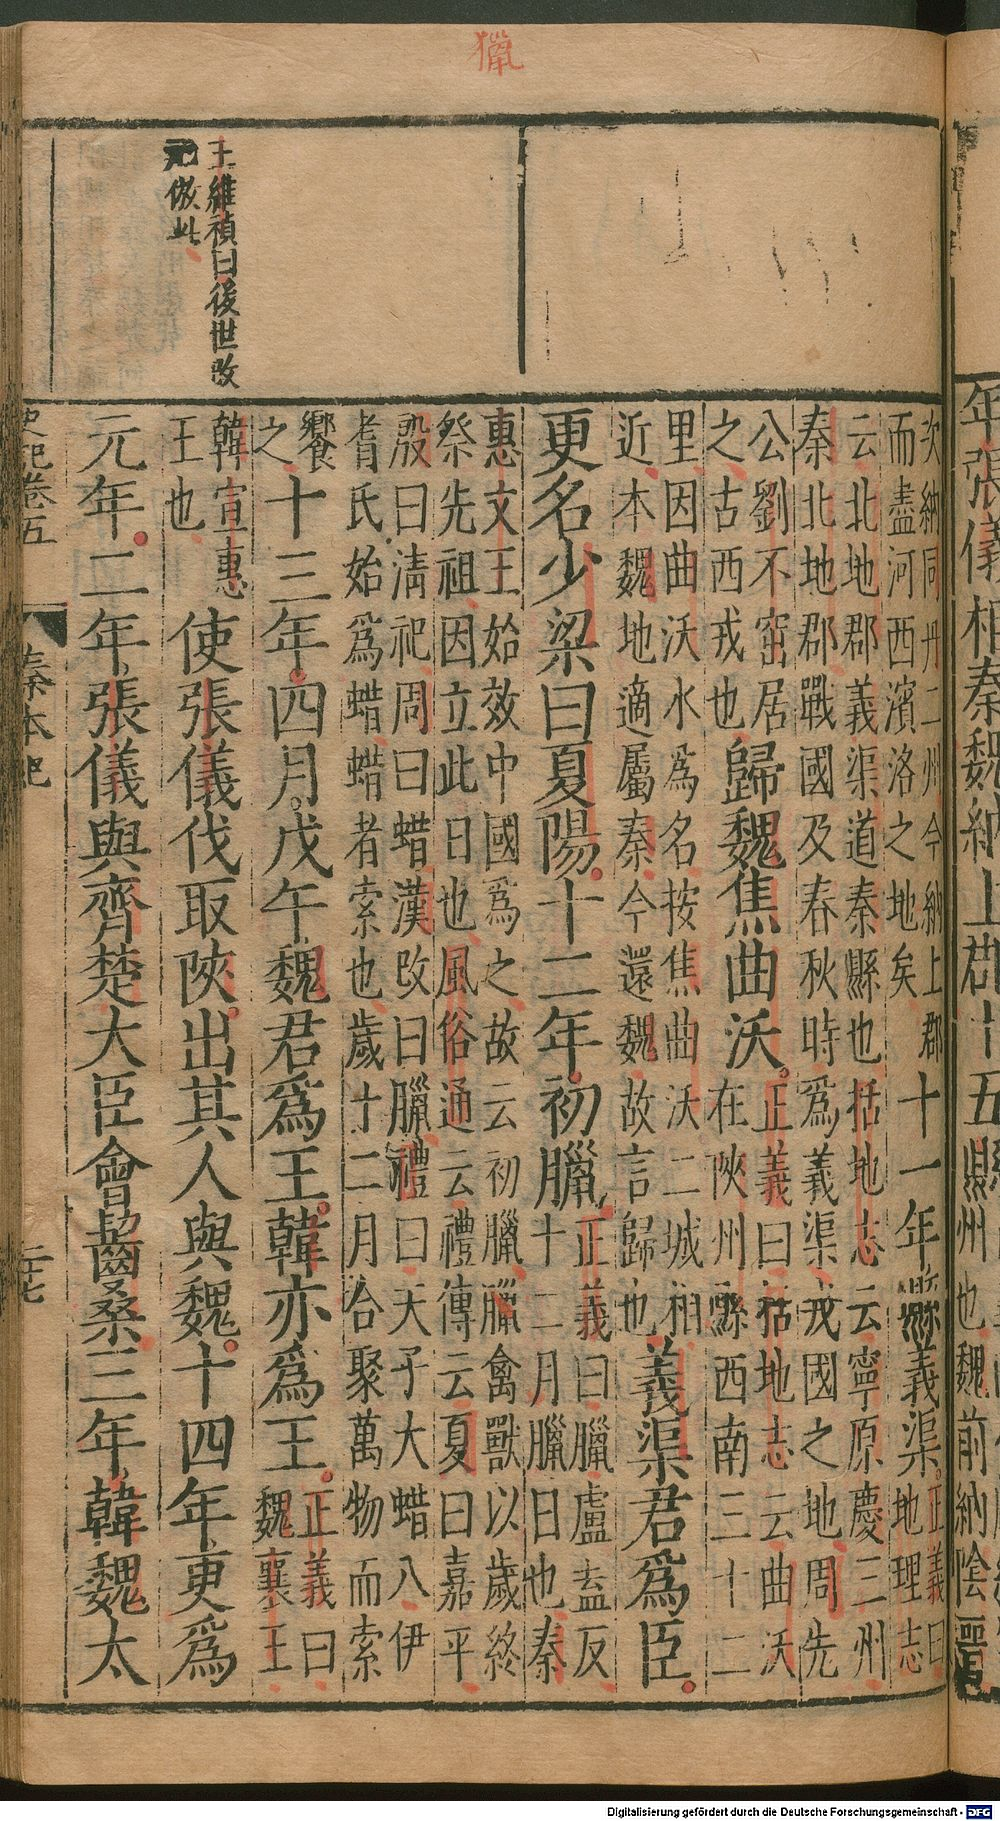 獵
王維禎曰後世改
元倣此
年張儀相秦魏納上郡十五縣
州也魏前納陰
次納同丹二州今納上郡
而盡河西濱洛之地矣
十一年縣義渠
正義曰
地理志
云北地郡義渠道秦縣也括地志云寧原慶三州
秦北地郡戰國及春秋時爲義渠戎國之地周先
公劉不窋居
之古西戎也
歸魏焦曲沃
正義曰括地志云曲沃
在陝州縣西南三十二
里因曲沃水爲名按焦曲沃二城相
近本魏地適屬秦今還魏故言歸也
義渠君爲臣
更名少梁曰夏陽十二年初臘
正義曰臘盧盍反
十二月臘日也秦
惠文王始效中國爲之故云初臘臘禽獸以歲終
祭先祖因立此日也風俗通云禮傳云夏曰嘉平
殷曰清祀周曰蜡漢改曰臘禮曰天子大蜡八伊
耆氏始爲蜡蜡者索也歲十二月合聚萬物而索
饗
之
十三年四月戊午魏君爲王韓亦爲王
正義曰
魏襄王
韓宣惠
王也
使張儀伐取陝出其人與魏十四年更爲
元年二年張儀與齊楚大臣會齧桑三年韓魏太
史記卷五
秦本紀
二十七
Digitalisierung gefördert durch die Deutsche Forschungsgemeinschaft - DFG